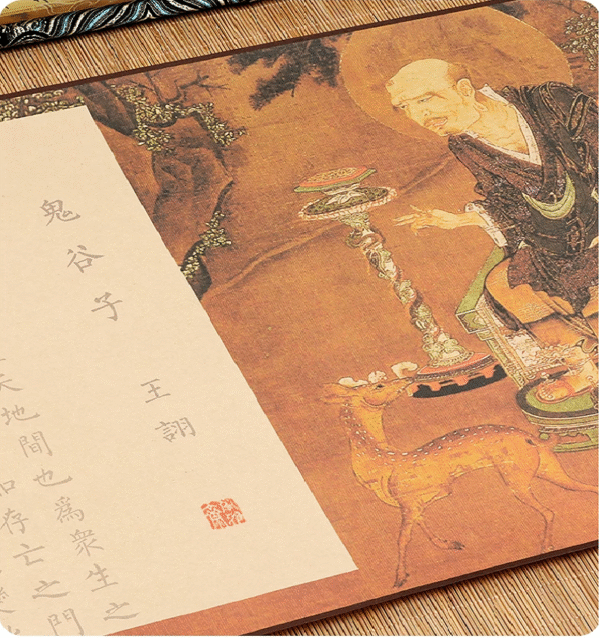 鬼谷子 王詡
天地間也爲眾生之
知存亡之門